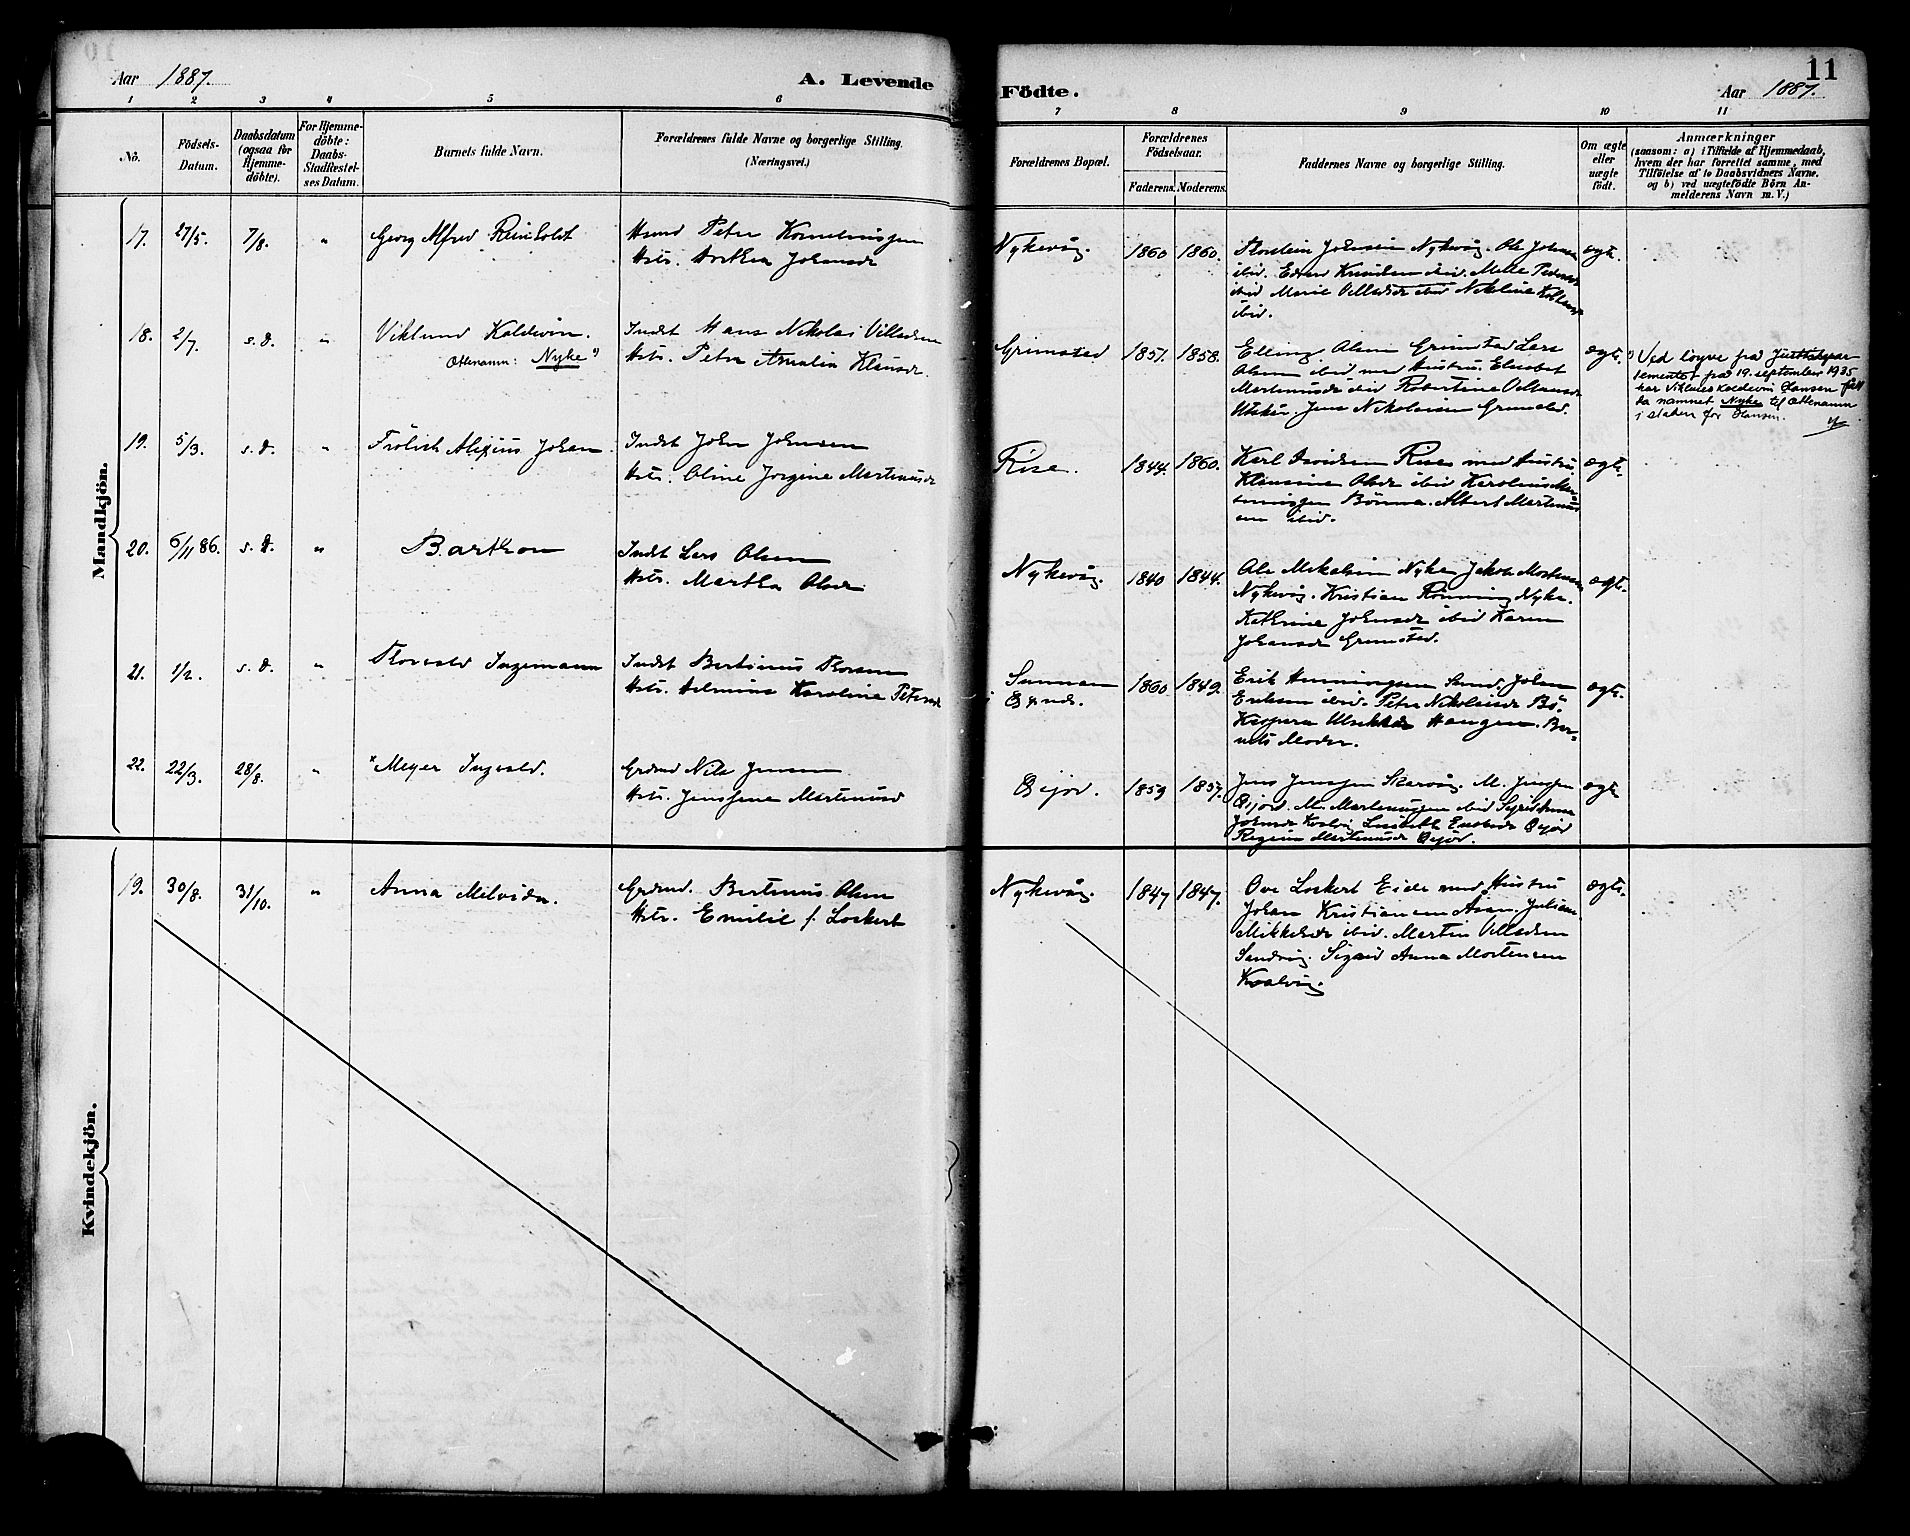 Aar 1887.
A. Levende
Födte.
11
Aar 1887.
1 2 3 4 5 6 7 8 9 10 11
Nô.
Födsels-
Datum.
Daabsdatum
(ogsaa for
Hjemme-
döbte).
For Hjemme-
döbte:
Daabs-
Stadfæstel-
ses Datum.
Barnets fulde Navn.
Forældrenes fulde Navne og borgerlige Stilling.
(Næringsvei.)
Forældrenes Bopæl.
Forældrenes
Födselsaar.
Faderens. Moderens.
Faddernes Navne og borgerlige Stilling.
Om ægte
eller
uægte
født.
Anmærkninger
(saasom: a) i Tilfælde af Hjemmedaab,
hvem der har forrettet samme, med
Tilföielse af to Daabsvidners Navne.
og b) ved uægtefödte Börn An-
melderens Navn m. V.)
Mandkjön.
17. 27/5. 7/8. " Georg Alfred Reinholdt
Hsmd Peter Korneliussen
Hstr. Anthea Johansdr
Nykvåg. 1860 1860.
Johnsen Nykvåg. Ole Johnsen
ibid. Knudsen ibid.
ibid Marie Villadsdr ibid Nikoline
ibid.
ægte.
18. 2/7. s.d. " Viklund Koldevin.
Ættenamn: Nyke
Indst Hans Nikolai Villadsen
Hstr. Petra Amalia Klausdr.
Grimsted 1857. 1858.
Elling Olsen Grimstad Lars
Olsen ibid med Hustru. Elisabet
Martinusdr ibid Robertine
Jens Nikolaisen Grimstad.
ægte.
Ved løyve frå Justisdepar
tementet frå 19. september 1935
har Viklund Koldevin Hansen fått
ta namnet Nyke til ættenamn
i staden for Hansen.
19. 5/3. s.d. " Frölich Alexius Johan
Indst John Johnsen
Hstr. Oline Jorgine Martinusdr
Rise. 1844. 1860.
Karl Davidsen Rise med Hustru
Klausine Olsdr ibid Karolius
Bönna. Albert Martinus
sen ibid.
ægte.
20. 6/11 86. s.d. " Barthon
Indst Lars Olsen
Hstr. Martha Olsdr
Nykvåg. 1840 1844.
Ole Mikalsen Nyke Jakob Mortensen
Nykvåg. Kristian Rönning Nyke.
Kathrine Johnsdr ibid Karen
Johansdr Grimstad.
ægte.
21. 1/2. s.d. " Thorvald Ingemann
Indst Bertinus Thorsen
Hstr. Helmine Karoline Petersdr
Sunnan
1860 1849.
Erik Henningsen Sund. Johan
Eriksen ibid. Petra Nikolaisdr Bö.
Kaspara Haugen. Bar-
nets Moder.
ægte.
22. 22/3. 28/8. " Meyer Ingvald.
Grdmd Nils Jensen
Hstr. Jenssine Martinusd
Gjor. 1859 1857.
Jens Jenssen Skarvåg. M. Jenssen
M. Martinussen ibid Sigrid Anna
Johnsdr Kvalvåg
Regine Martinusdr
ægte
Kvindekjön.
19. 30/8. 31/10. " Anna Milvida.
Grdmd. Bertinus Olsen
Hstr. Emilie f. Lockert
Nykvåg. 1847 1847.
Ove Lockert Eide med Hustru
Johan Kristiansen Åsan. Juliane
Mikkelsdr ibid. Martin Villadsen
Sandvig. Sigrid Anna Mortensen
Kvalvåg.
ægte.